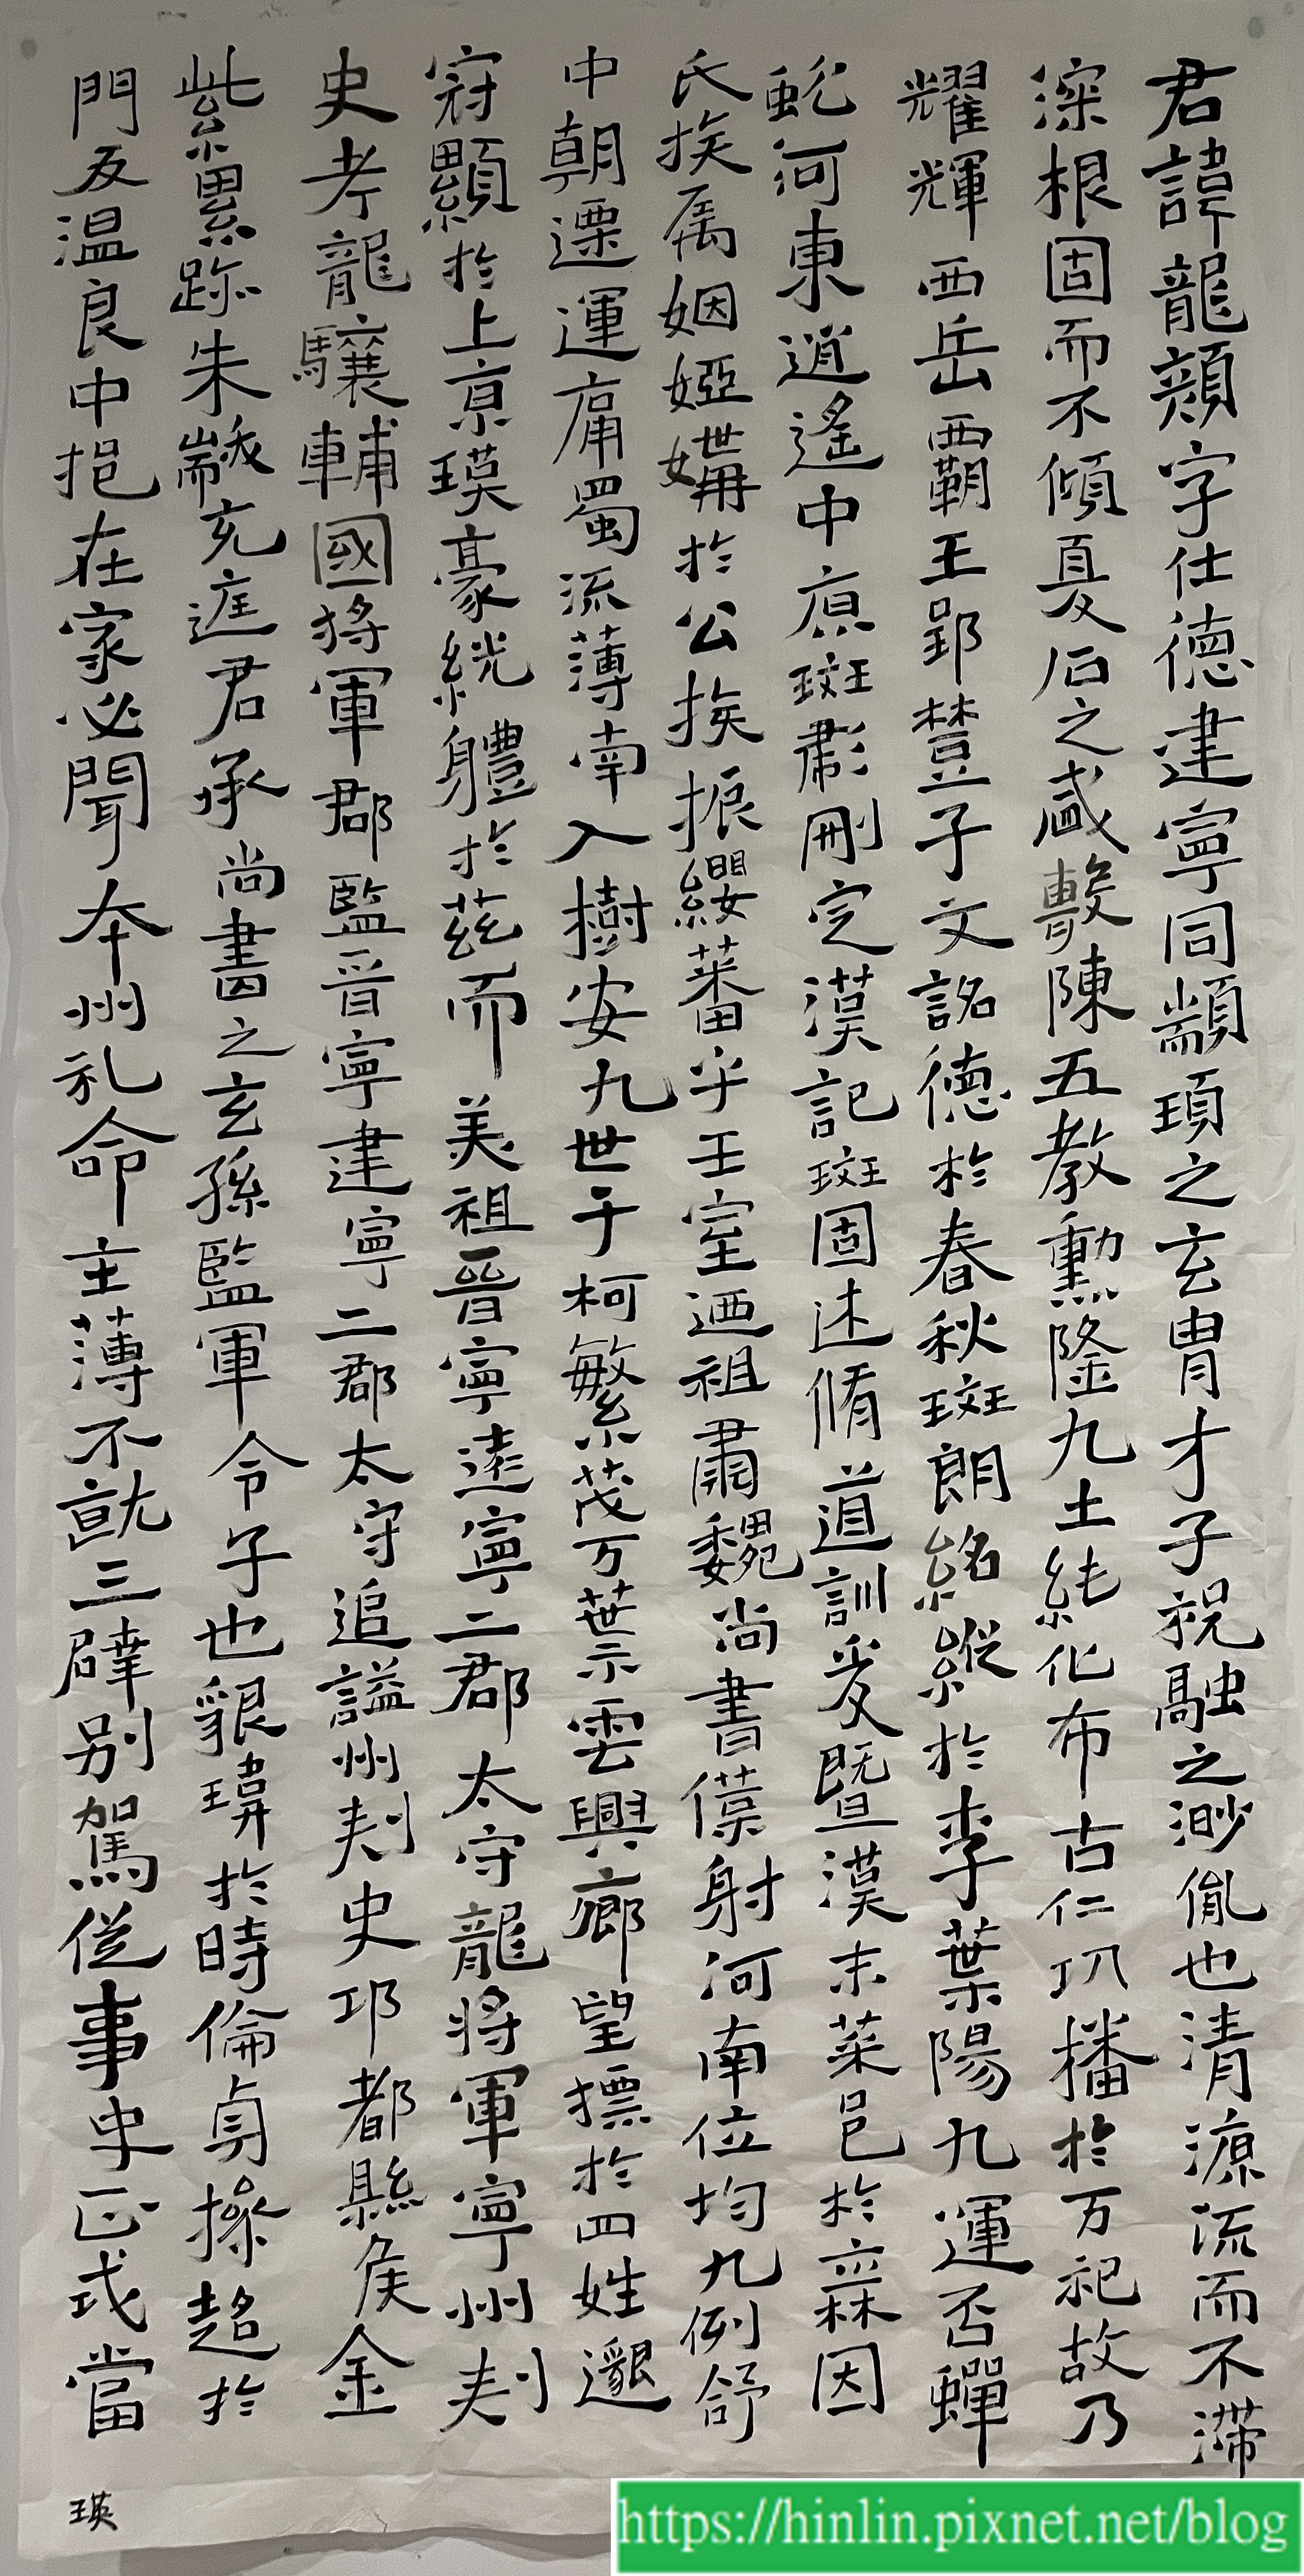 君諱龍顏字仕德建寧同顓頊之玄胄才子祝融之渺胤也清源流而不滯
深根固而不傾夏后之盛敷陳五教勳隆九土純化布古仁功播於万祀故乃
耀輝西岳霸王郢楚子文詺德於春秋斑朗紹縱於季葉陽九運否蟬
蛻河東逍遙中原斑彪刪定漢記斑固述脩道訓爰暨漢末菜邑於寀因
氏族属姻婭媾於公族振纓蕃乎王室迺祖肅魏尚書僕射河南位均九例舒
中朝遷運庸蜀流薄南入樹安九世千柯繁茂万葉示雲興鄉望摽於四姓邈
冠顯於上京瑛豪継體於茲而美祖晉寧建寧二郡太守龍將軍寧州刺
史考龍驤輔國將軍郡監晉寧建寧二郡太守追謚州刺史邛都縣侯金
紫累跡朱黻充庭君承尚書之玄孫監軍令子也貌瑋於時倫貞操超於
門友温良中挹在家必聞本州礼命主薄不就三辟別駕從事史正式當
瑛
https://hinlin.pixnet.net/blog